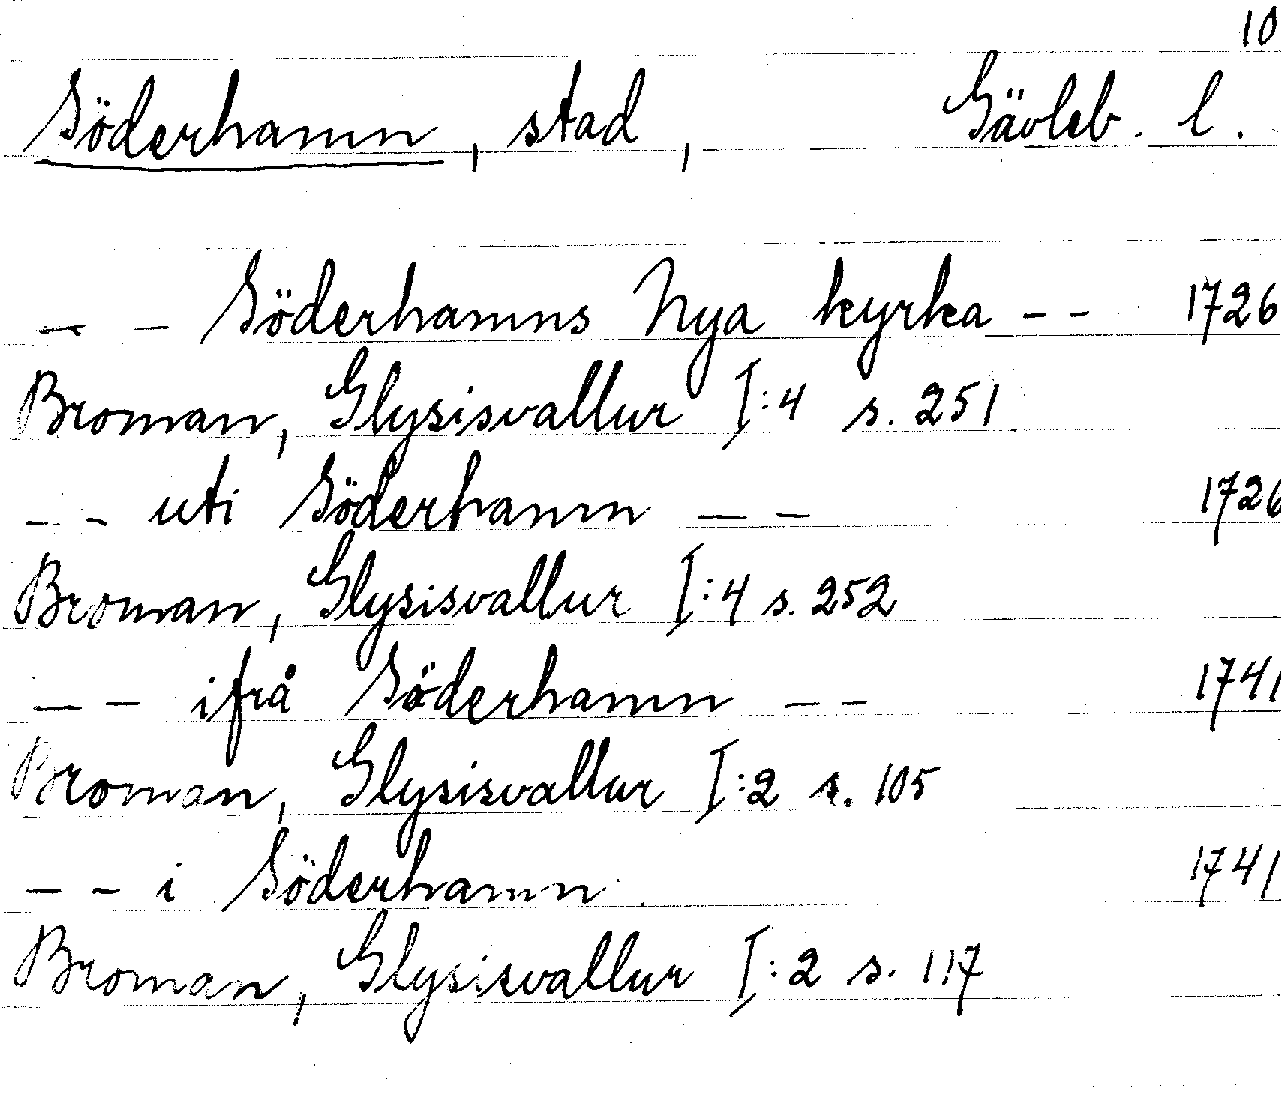 10
Söderhamn, stad, Gävleb. l.
– – Söderhamns Nya kyrka – – 1726
Broman, Glysisvallur I:4 s. 251
– – uti Söderhamn – – 1726
Broman, Glysisvallur I:4 s. 252
– – ifrå Söderhamn – – 1741
Broman, Glysisvallur I:2 s. 105
– – i Söderhamn 1741
Broman, Glysisvallur I:2 s. 117